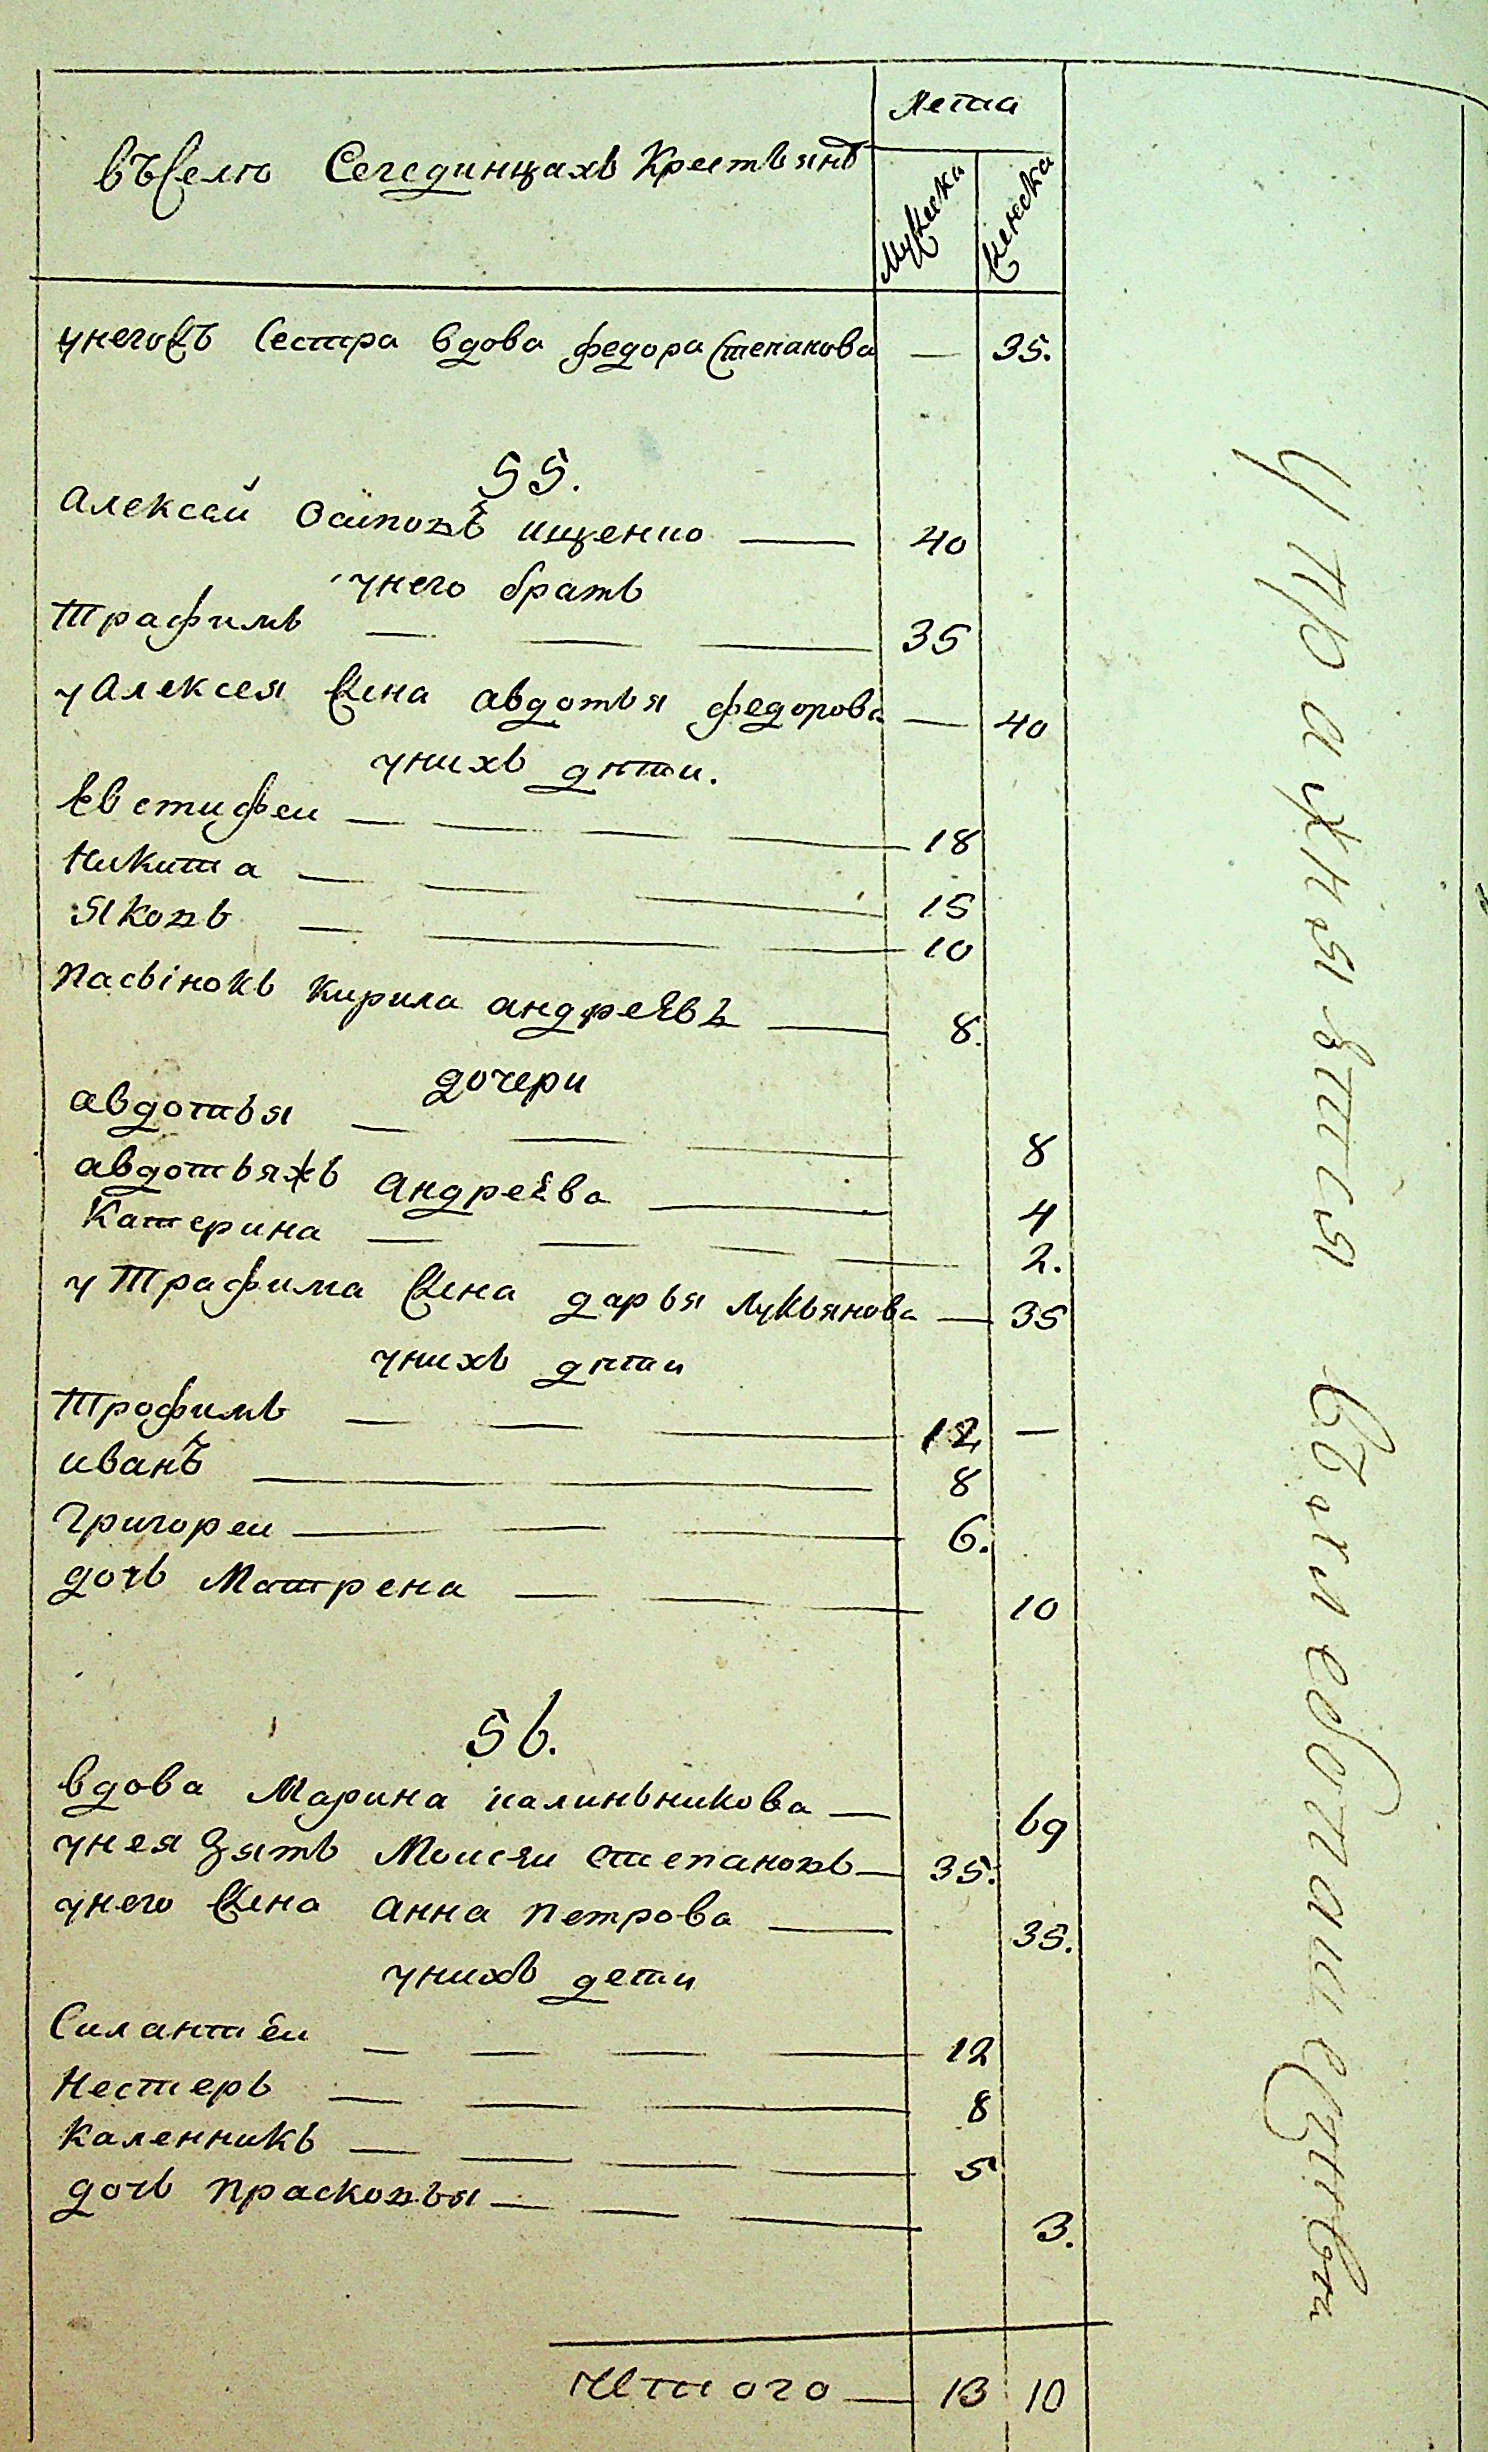 въ Селѣ Сегединцахъ Крестьянъ
Лета
Мужеска
Женска
унегожъ Сестра вдова федора Степанова — 35.
55.
Алексей Осиповъ ищенко — 40
унего братъ
Трафимъ — 35
у Алексея Жена авдотья федорова — 40
унихъ дѣти.
Евстифеи — 18
Никита — 15
Яковъ — 10
пасынокъ Кирила андреевъ — 8.
дочери
авдотья — 8
авдотьяжъ андреева — 4
Катерина — 2.
у Трафима Жена дарья Лукьянова — 35
унихъ дѣти
Трофимъ — 12 —
иванъ — 8
Григореи — 6.
дочь Матрена — 10
56.
вдова Марина калиньникова — 69
унея Зять Моисеи Степановъ — 35.
унего Жена Анна петрова — 35.
унихъ дети
Силантеи — 12
Нестеръ — 8
Каленникъ — 5
дочь прасковья — 3.
Итого — 13 10
Упражняѣтся въ хлебопашествѣ